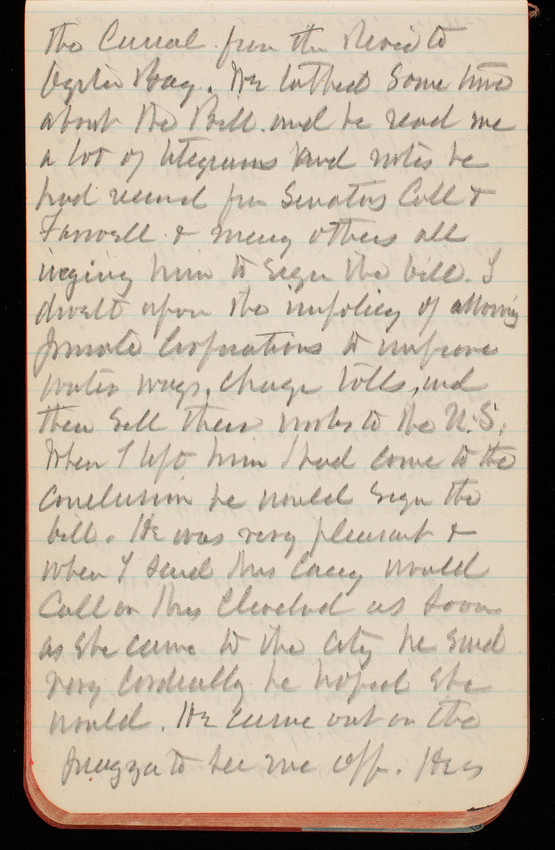 the Canal from the Head to
Oyster Bay. We talked some time
about the Bill and he read me
a lot of telegrams and notes he
had received from Senators Call &
Farwell & many others all
urging him to sign the bill. I
dwelt upon the impolicy of allowing
private Corporations to improve
water ways, charge tolls, and
then sell their works to the U.S.
When I left him I had come to the
conclusion he would sign the
bill. He was very pleasant &
when I said Mrs Casey would
Call on Mrs Cleveland as soon
as she came to the City he said
very cordially he hoped she
would. He came out on the
piazza to see me off. He is